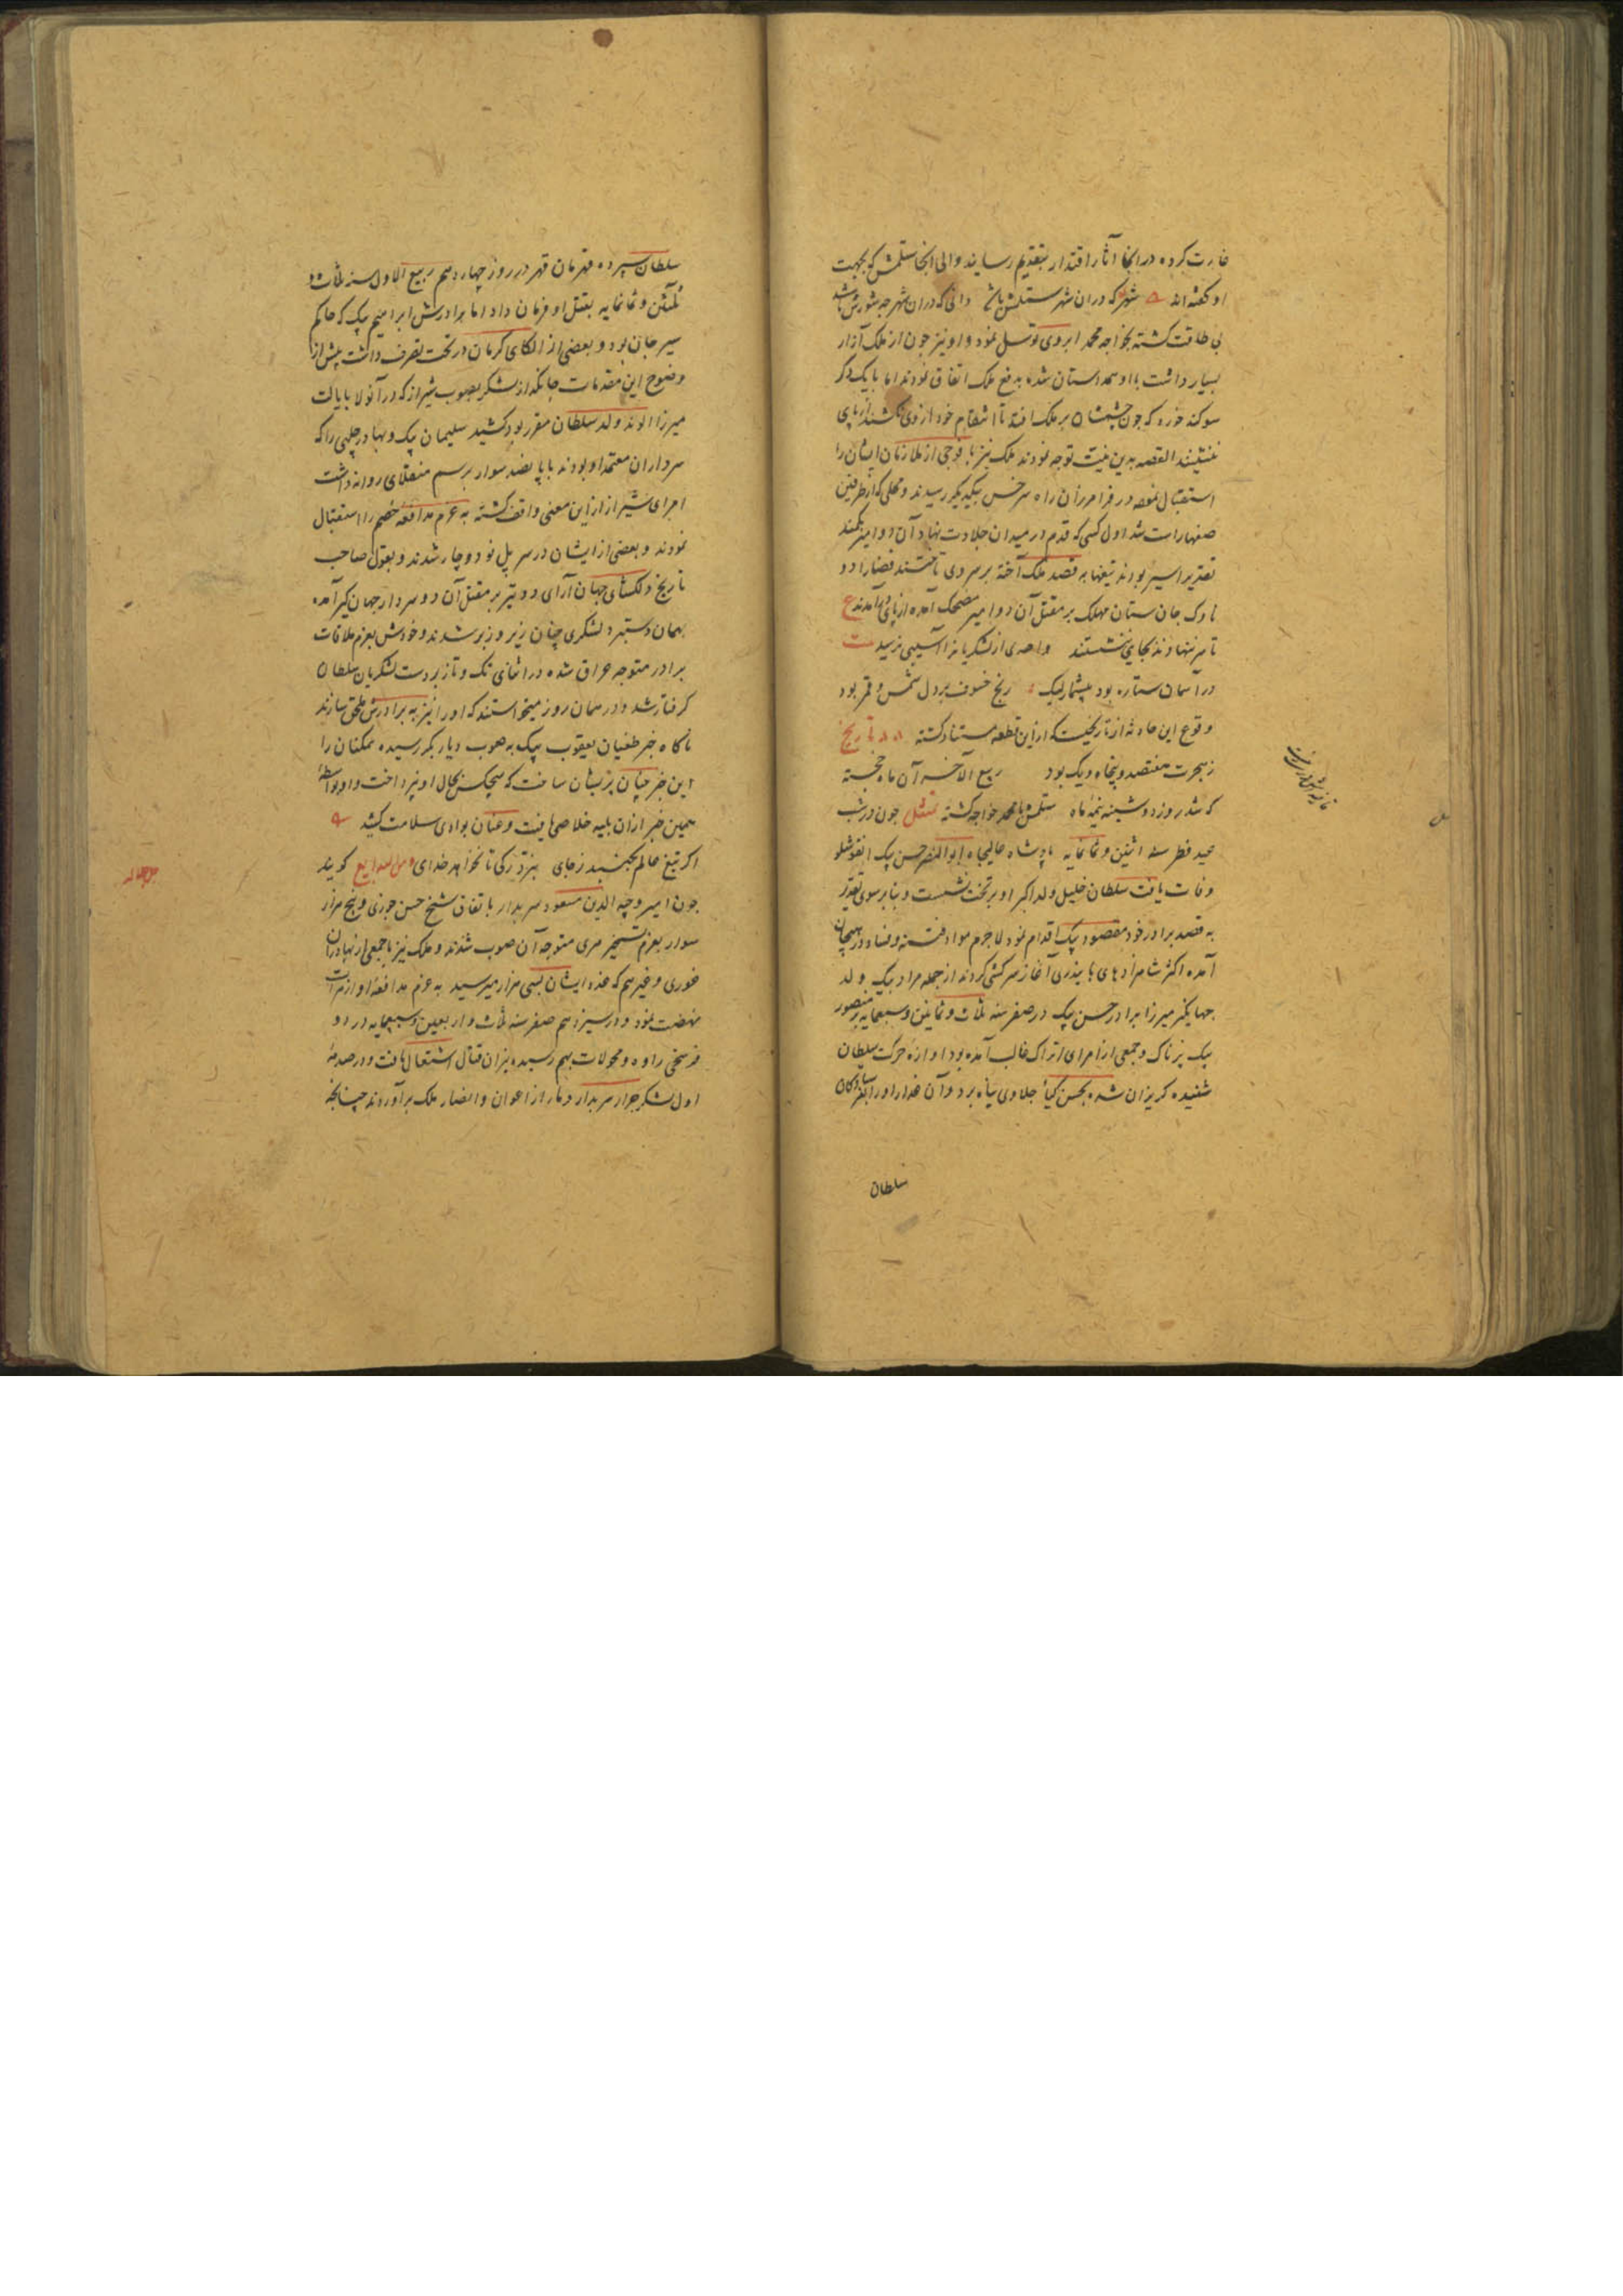 غارت کرده در انجا آثار اقتدار بتقدیم رسانید والی انجا ستلمش که بجهت
او گفته‌اند شهر که دران شهر ستلمش باشد دانی که دران شهر چه شورش باشد
بی طاقت کشته بخواجه محمد ابردی توسل نمود و او نیز چون از ملک آزار
بسیار داشت با او همداستان شده بدفع ملک اتفاق نمودند اما با یک دگر
سوکند خورد که چون چشمشان بر ملک افتد تا انتقام خود از وی نکشند از پای
ننشینند القصه بدین نیت توجه نمودند ملک نیز با فوجی از ملازمان ایشان را
استقبال نموده در فرامرزان راه سرخس بیکدیگر رسیدند و محلی که از طرفین
صفها راست شد اول کسی که قدم در میدان جلادت نهاد آن دو امیر بکمند
تقدیر اسیر بودند تیغها به قصد ملک آخته بر سر وی تاختند قضا را دو
ناوک جان ستان مهلک بر مقتل آن دو امیر مضحک آمده از پای درآمدند ع
تا سر ننهادند بجای ننشستند واحدی از لشکریانرا آسیبی نرسید بیت
در آسمان ستاره بود بیشمار لیک رنج خسوف بر دل شمس و قمر بود
وقوع این حادثه از تاریخیست که ازین قطعه مستفاد کشته تاریخ
ز هجرت هفتصد و پنجاه و یک بود ربیع الآخر آن ماه خجسته
که شد روز دوشنبه نیمه ماه ستلمش با محمد خواجه کشته نقل چون در شب
عید فطر سنه اثنین و ثمانمایه پادشاه عالیجاه ابوالنصر حسن بیک اققوینلو
وفات یافت سلطان خلیل ولد اکبر او بر تخت نشست و بنابر سوی تقدیر
به قصد برادر خود مقصود بیک اقدام نمود لاجرم مواد فتنه و فساد در هیجان
آمده اکثر شاهزادهای بایندری آغاز سرکشی کردند از جمله مراد بیک ولد
جهانگیر میرزا برادر حسن بیک در صفر سنه ثلاث و ثمانین و سبعمایه بر منصور
بیک پرناک و جمعی از امرای اتراک غالب آمده بود آوازه حرکت سلطان
شنیده کریزان شده بحسن کیا جلاوی پناه برد و آن غدار او را بملازمان
سلطان
سلطان سپرده قهرمان قهر در روز چهاردهم ربیع الاول سنه ثلاث و
ثمانین و ثمانمایه بقتل او فرمان داد اما برادرش ابراهیم بیک که حاکم
سیرجان بود و بعضی از الکای کرمان در تحت تصرف داشت پیش از
وضوح این مقدمات چانکه از لشکر بصوب شیراز که در آنولا بایالت
میرزا الوند ولد سلطان مقرر بود کشید سلیمان بیک و بهادر چلبی را که
سرداران معتمد او بودند با پانصد سوار برسم منقلای روانه داشت
امرای شیراز ازین معنی واقف کشته به عزم مدافعه خصم را استقبال
نمودند و بعضی از ایشان در سر پل نو دوچار شدند و بقول صاحب
تاریخ دلکشای جهان آرای دو تیر بر مقتل آن دو سردار جهان گیر آمده
بهمان دستبرد لشکری چنان زیر و زبر شدند و خودش بعزم ملاقات
برادر متوجه عراق شده در اثنای تک و تاز بدست لشکریان سلطان
کرفتار شد و در همان روز میخواستند که او را نیز به برادرش ملحق سازند
ناکاه خبر طغیان یعقوب بیک به صوب دیار بکر رسیده همکنان را
این خبر چنان پریشان ساخت که هیچکس بحال او نپرداخت و او بواسطه
همین خبر ازان بلیه خلاصی یافت و عنان بوادی سلامت کشید
اکر تیغ عالم بجنبد ز جای نبرد رکی تا نخواهد خدای و من البدایع کویند
چون امیر وجیه الدین مسعود سربدار باتفاق شیخ حسن جوری و پنج هزار
سوار بعزم تسخیر هری متوجه آن صوب شدند و ملک نیز با جمعی از بهادران
غوری و غیرهم که عده ایشان بسی هزار میرسید به عزم مدافعه او از هرات
نهضت نمود و در سیزدهم صفر سنه ثلاث و اربعین و سبعمایه در دو
فرسخی زاوه و محولات بهم رسیده نیران قتال اشتعال یافت و در صدمه
اول لشکر جرار سربدار دمار از اعوان و انصار ملک برآوردند چنانچه